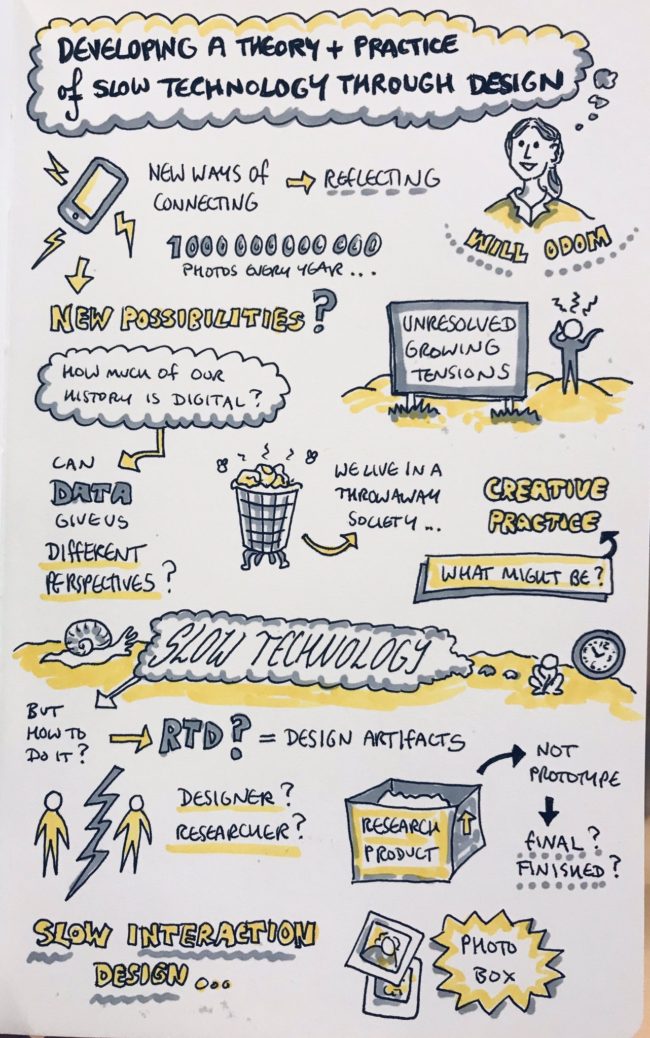 DEVELOPING A THEORY + PRACTICE
of SLOW TECHNOLOGY THROUGH DESIGN
NEW WAYS OF → REFLECTING
CONNECTING
WILL ODOM
1000000000000
PHOTOS EVERY YEAR...
NEW POSSIBILITIES?
UNRESOLVED
GROWING
TENSIONS
HOW MUCH OF OUR
HISTORY IS DIGITAL?
CAN
DATA
GIVE US
DIFFERENT
PERSPECTIVES?
WE LIVE IN A
THROWAWAY
SOCIETY...
CREATIVE
PRACTICE
WHAT MIGHT BE?
SLOW TECHNOLOGY
BUT
HOW TO
DO IT?
→ RTD? = DESIGN ARTIFACTS
DESIGNER?
RESEARCHER?
RESEARCH
PRODUCT
NOT
PROTOTYPE
FINAL?
FINISHED?
SLOW INTERACTION
DESIGN...
PHOTO
BOX